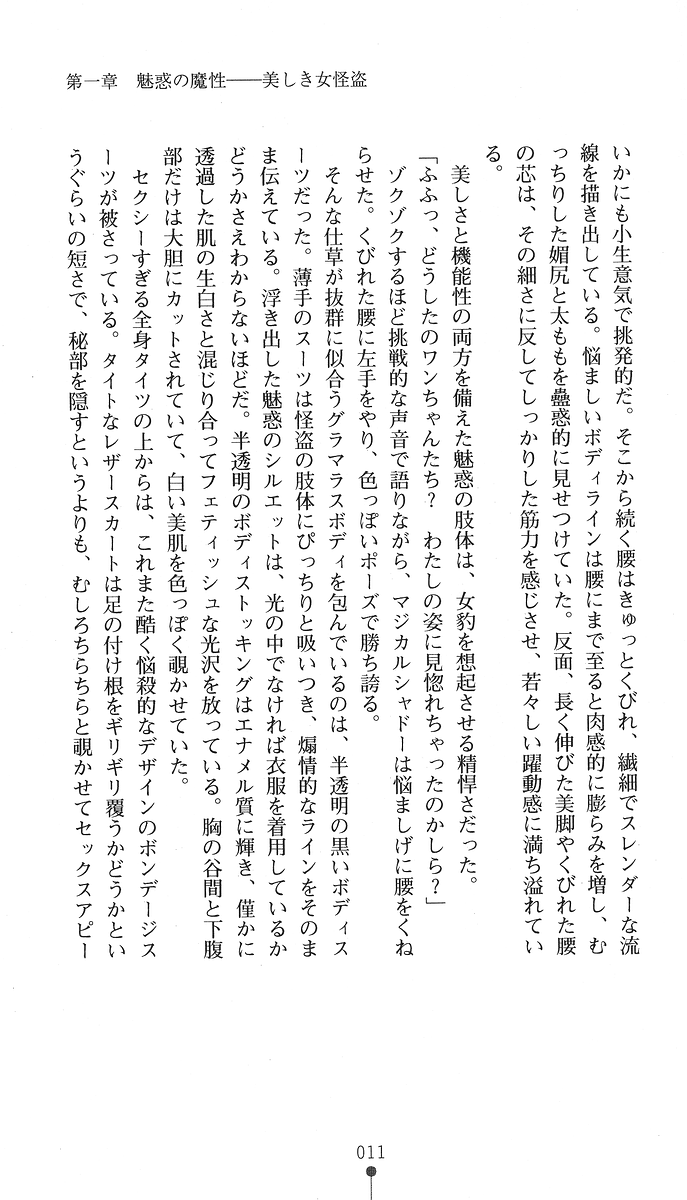 第一章　魅惑の魔性――美しき女怪盗
いかにも小生意気で挑発的だ。そこから続く腰はきゅっとくびれ、繊細でスレンダーな流
線を描き出している。悩ましいボディラインは腰にまで至ると肉感的に膨らみを増し、む
っちりした媚尻と太ももを蠱惑的に見せつけていた。反面、長く伸びた美脚やくびれた腰
の芯は、その細さに反してしっかりした筋力を感じさせ、若々しい躍動感に満ち溢れてい
る。
　美しさと機能性の両方を備えた魅惑の肢体は、女豹を想起させる精悍さだった。
「ふふっ、どうしたのワンちゃんたち？　わたしの姿に見惚れちゃったのかしら？」
　ゾクゾクするほど挑戦的な声音で語りながら、マジカルシャドーは悩ましげに腰をくね
らせた。くびれた腰に左手をやり、色っぽいポーズで勝ち誇る。
　そんな仕草が抜群に似合うグラマラスボディを包んでいるのは、半透明の黒いボディス
ーツだった。薄手のスーツは怪盗の肢体にぴっちりと吸いつき、煽情的なラインをそのま
ま伝えている。浮き出した魅惑のシルエットは、光の中でなければ衣服を着用しているか
どうかさえわからないほどだ。半透明のボディストッキングはエナメル質に輝き、僅かに
透過した肌の生白さと混じり合ってフェティッシュな光沢を放っている。胸の谷間と下腹
部だけは大胆にカットされていて、白い美肌を色っぽく覗かせていた。
　セクシーすぎる全身タイツの上からは、これまた酷く悩殺的なデザインのボンデージス
ーツが被さっている。タイトなレザースカートは足の付け根をギリギリ覆うかどうかとい
うぐらいの短さで、秘部を隠すというよりも、むしろちらちらと覗かせてセックスアピー
011